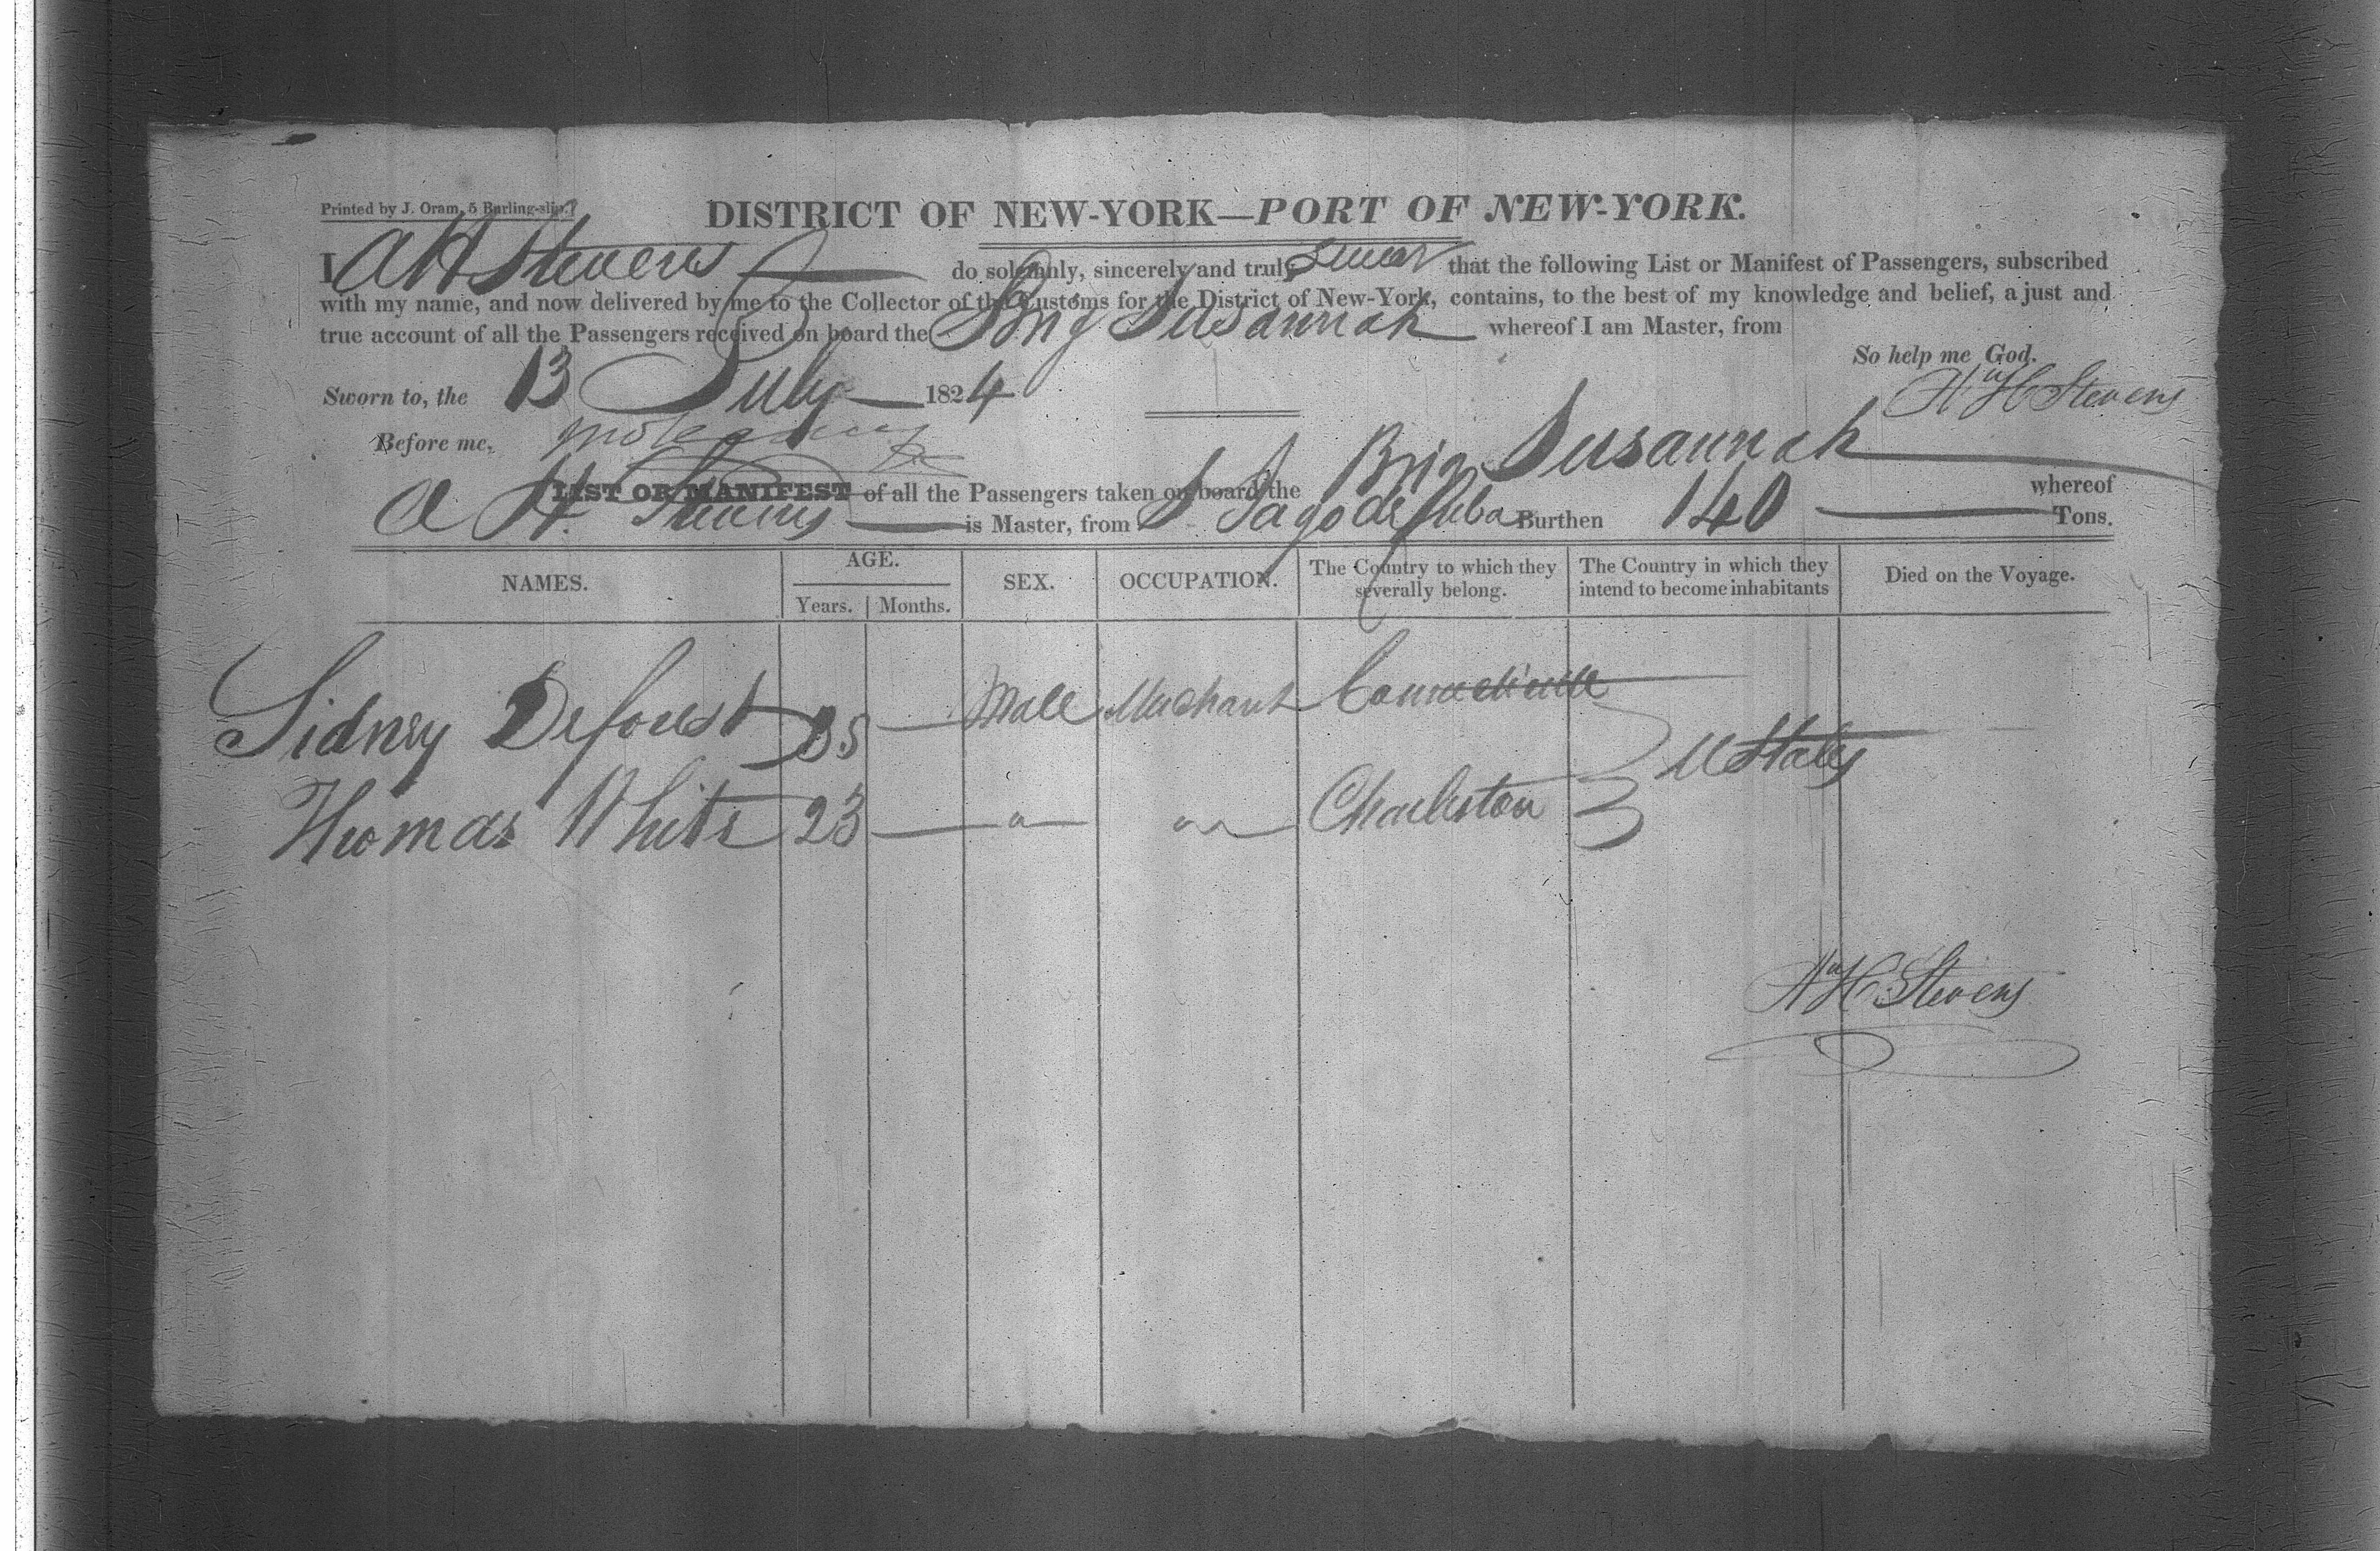 Printed by J. Oram, 5 Burling-slip.
DISTRICT OF NEW-YORK—PORT OF NEW-YORK.
I A H Stevens do solemnly, sincerely and truly swear that the following List or Manifest of Passengers, subscribed
with my name, and now delivered by me to the Collector of the Customs for the District of New-York, contains, to the best of my knowledge and belief, a just and
true account of all the Passengers received on board the Brig Susannah whereof I am Master, from
So help me God.
Sworn to, the 13 July 1824
A H Stevens
Before me,
LIST OR MANIFEST of all the Passengers taken on board the Brig Susannah whereof
A H. Stevens is Master, from S Jago de Cuba Burthen 140 Tons.
NAMES. AGE. SEX. OCCUPATION. The Country to which they severally belong. The Country in which they intend to become inhabitants Died on the Voyage.
Years. Months.
Sidney Deforest 35 — Male Merchant
U States
Thomas White 23 — " " Charleston
A H Stevens